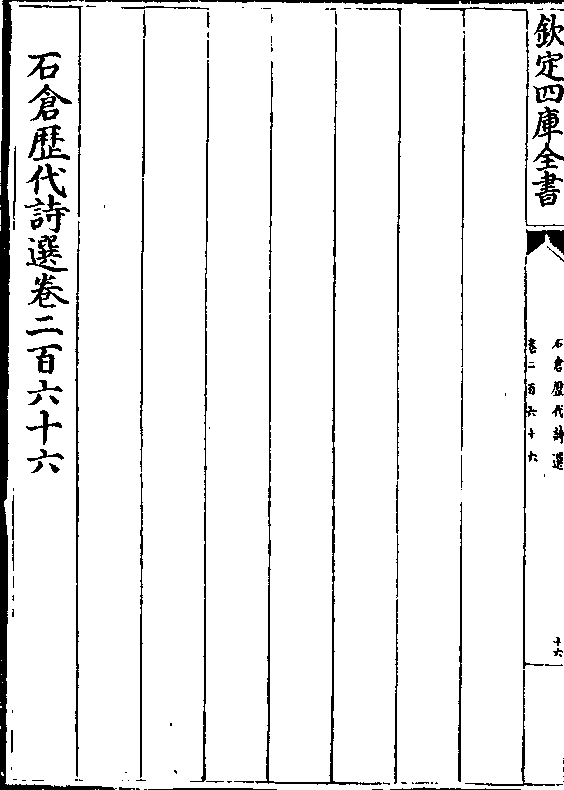 欽定四庫全書
石倉歴代詩選
卷二百六十六
十六
石倉歴代詩選卷二百六十六